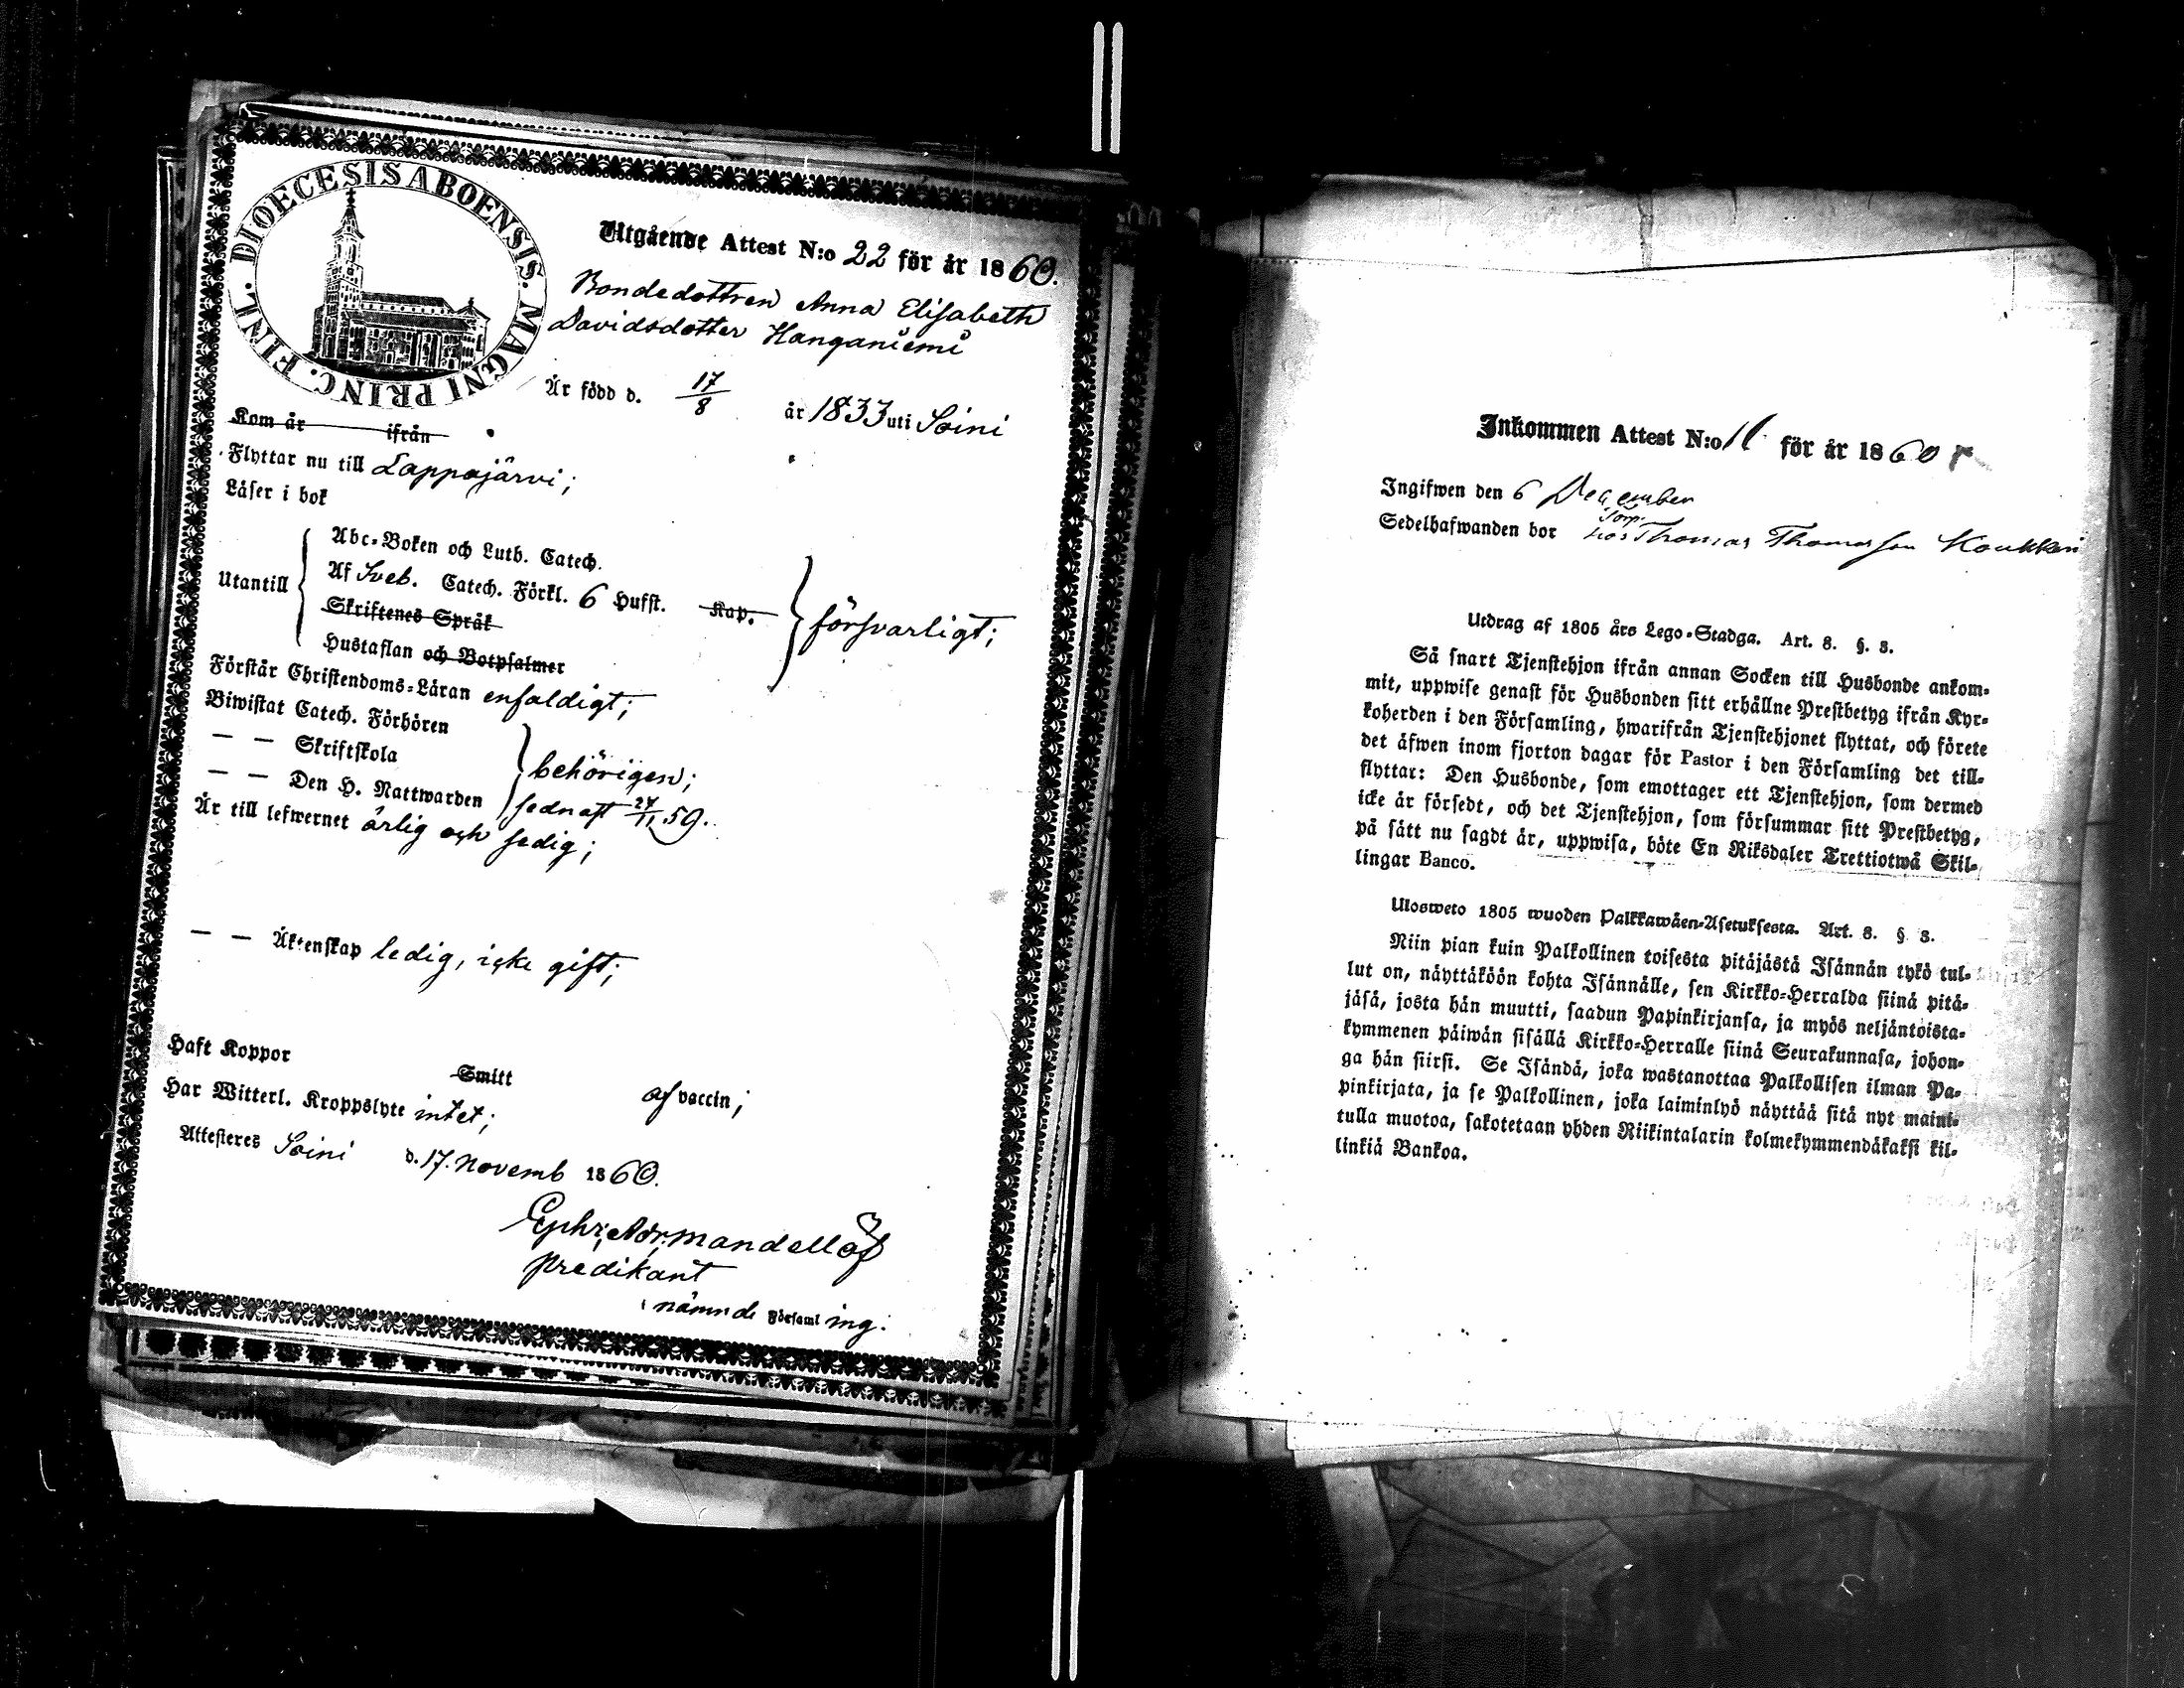 DIOECESIS ABOENSIS. MAGNI PRINC. FINL.
Utgående Attest N:o 22 för år 1860.
Bondedottren Anna Elisabeth
Davidsdotter Hanganiemi
Är född d. 17/8 år 1833 uti Soini
Kom år ifrån
Flyttar nu till Lappajärvi;
Läser i bok
Utantill
Abc-Boken och Luth. Catech.
Af Sveb. Catech. Förkl. 6 Hufst. Kap.
Skriftenes Språk
Hustaflan och Botpsalmer
försvarligt;
Förstår Christendoms-Läran enfaldigt;
Biwistat Catech. Förhören
— — Skriftskola
behörigen;
— — Den H. Nattwarden sednast 27/11 59.
Är till lefwernet ärlig och sedig;
— — Äktenskap ledig, icke gift;
Haft Koppor Smitt af vaccin;
Har Witterl. Kroppslyte intet;
Attesteres Soini d. 17. Novemb 1860.
predikant
i nämnde Församling.
Inkommen Attest N:o 11 för år 1860
Ingifwen den 6 December
Sedelhafwanden bor hos Torp. Thomas Thomasson
Utdrag af 1805 års Lego-Stadga. Art. 8. §. 3.
Så snart Tjenstehjon ifrån annan Socken till Husbonde ankom-
mit, uppwise genast för Husbonden sitt erhållne Prestbetyg ifrån Kyr-
koherden i den Församling, hwarifrån Tjenstehjonet flyttat, och förete
det äfwen inom fjorton dagar för Pastor i den Församling det till-
flyttar: Den Husbonde, som emottager ett Tjenstehjon, som dermed
icke är försedt, och det Tjenstehjon, som försummar sitt Prestbetyg,
på sätt nu sagdt är, uppwisa, böte En Riksdaler Trettiotwå Skil-
lingar Banco.
Ulosweto 1805 wuoden Palkkawäen-Asetuksesta. Art. 8. § 3.
Niin pian kuin Palkollinen toisesta pitäjästä Isännän tykö tul-
lut on, näyttäköön kohta Isännälle, sen Kirkko-Herralda siinä pitä-
jäsä, josta hän muutti, saadun Papinkirjansa, ja myös neljäntoista-
kymmenen päiwän sisällä Kirkko-Herralle siinä Seurakunnasa, johon-
ga hän siirsi. Se Isändä, joka wastanottaa Palkollisen ilman Pa-
pinkirjata, ja se Palkollinen, joka laiminlyö näyttää sitä nyt maini-
tulla muotoa, sakotetaan yhden Riikintalarin kolmekymmendäkaksi kil-
linkiä Bankoa.